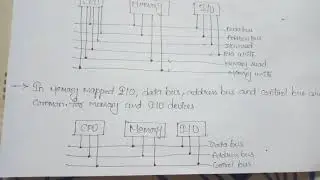 CPU Memory I/O
Data bus
Address bus
I/O read
I/O write
Memory read
Memory write
→ In Memory mapped I/O, data bus, address bus and control bus are
common for memory and I/O devices
CPU Memory I/O
Data bus
Address bus
Control bus